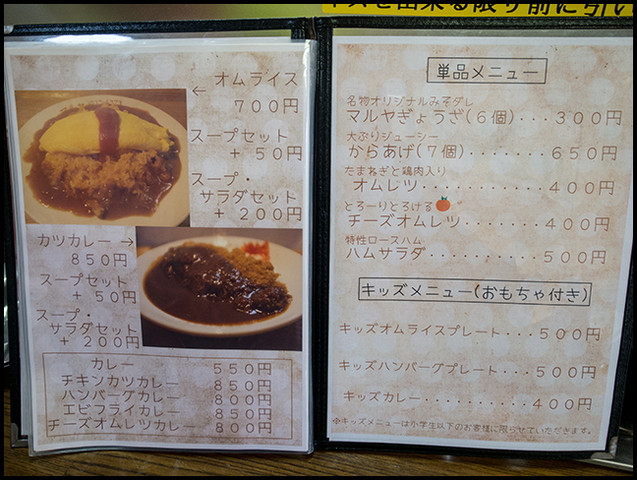 オムライス
←
700円
スープセット
+ 50円
スープ・
サラダセット
+ 200円
カツカレー→
850円
スープセット
+ 50円
スープ・
サラダセット
+ 200円
カレー 550円
チキンカツカレー 850円
ハンバーグカレー 800円
エビフライカレー 850円
チーズオムレツカレー 800円
単品メニュー
名物オリジナルみそダレ
マルヤぎょうざ(6個)...300円
大ぶりジューシー
からあげ(7個)........650円
たまねぎと鶏肉入り
オムレツ............400円
とろーりとろける
チーズオムレツ.......400円
特性ロースハム
ハムサラダ..........500円
キッズメニュー(おもちゃ付き)
キッズオムライスプレート...500円
キッズハンバーグプレート...500円
キッズカレー..........400円
※キッズメニューは小学生以下のお客様に限らせていただきます。